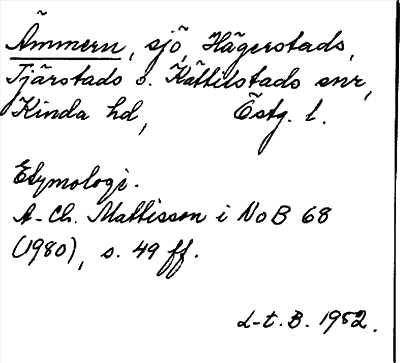 Ämmern, sjö, Hägerstads,
Tjärstads o. Kättilstads snr,
Kinda hd, Östg. l.
Etymologi.
A-Ch. Mattisson i NoB 68
(1980), s. 49 ff.
L-t. B. 1982.